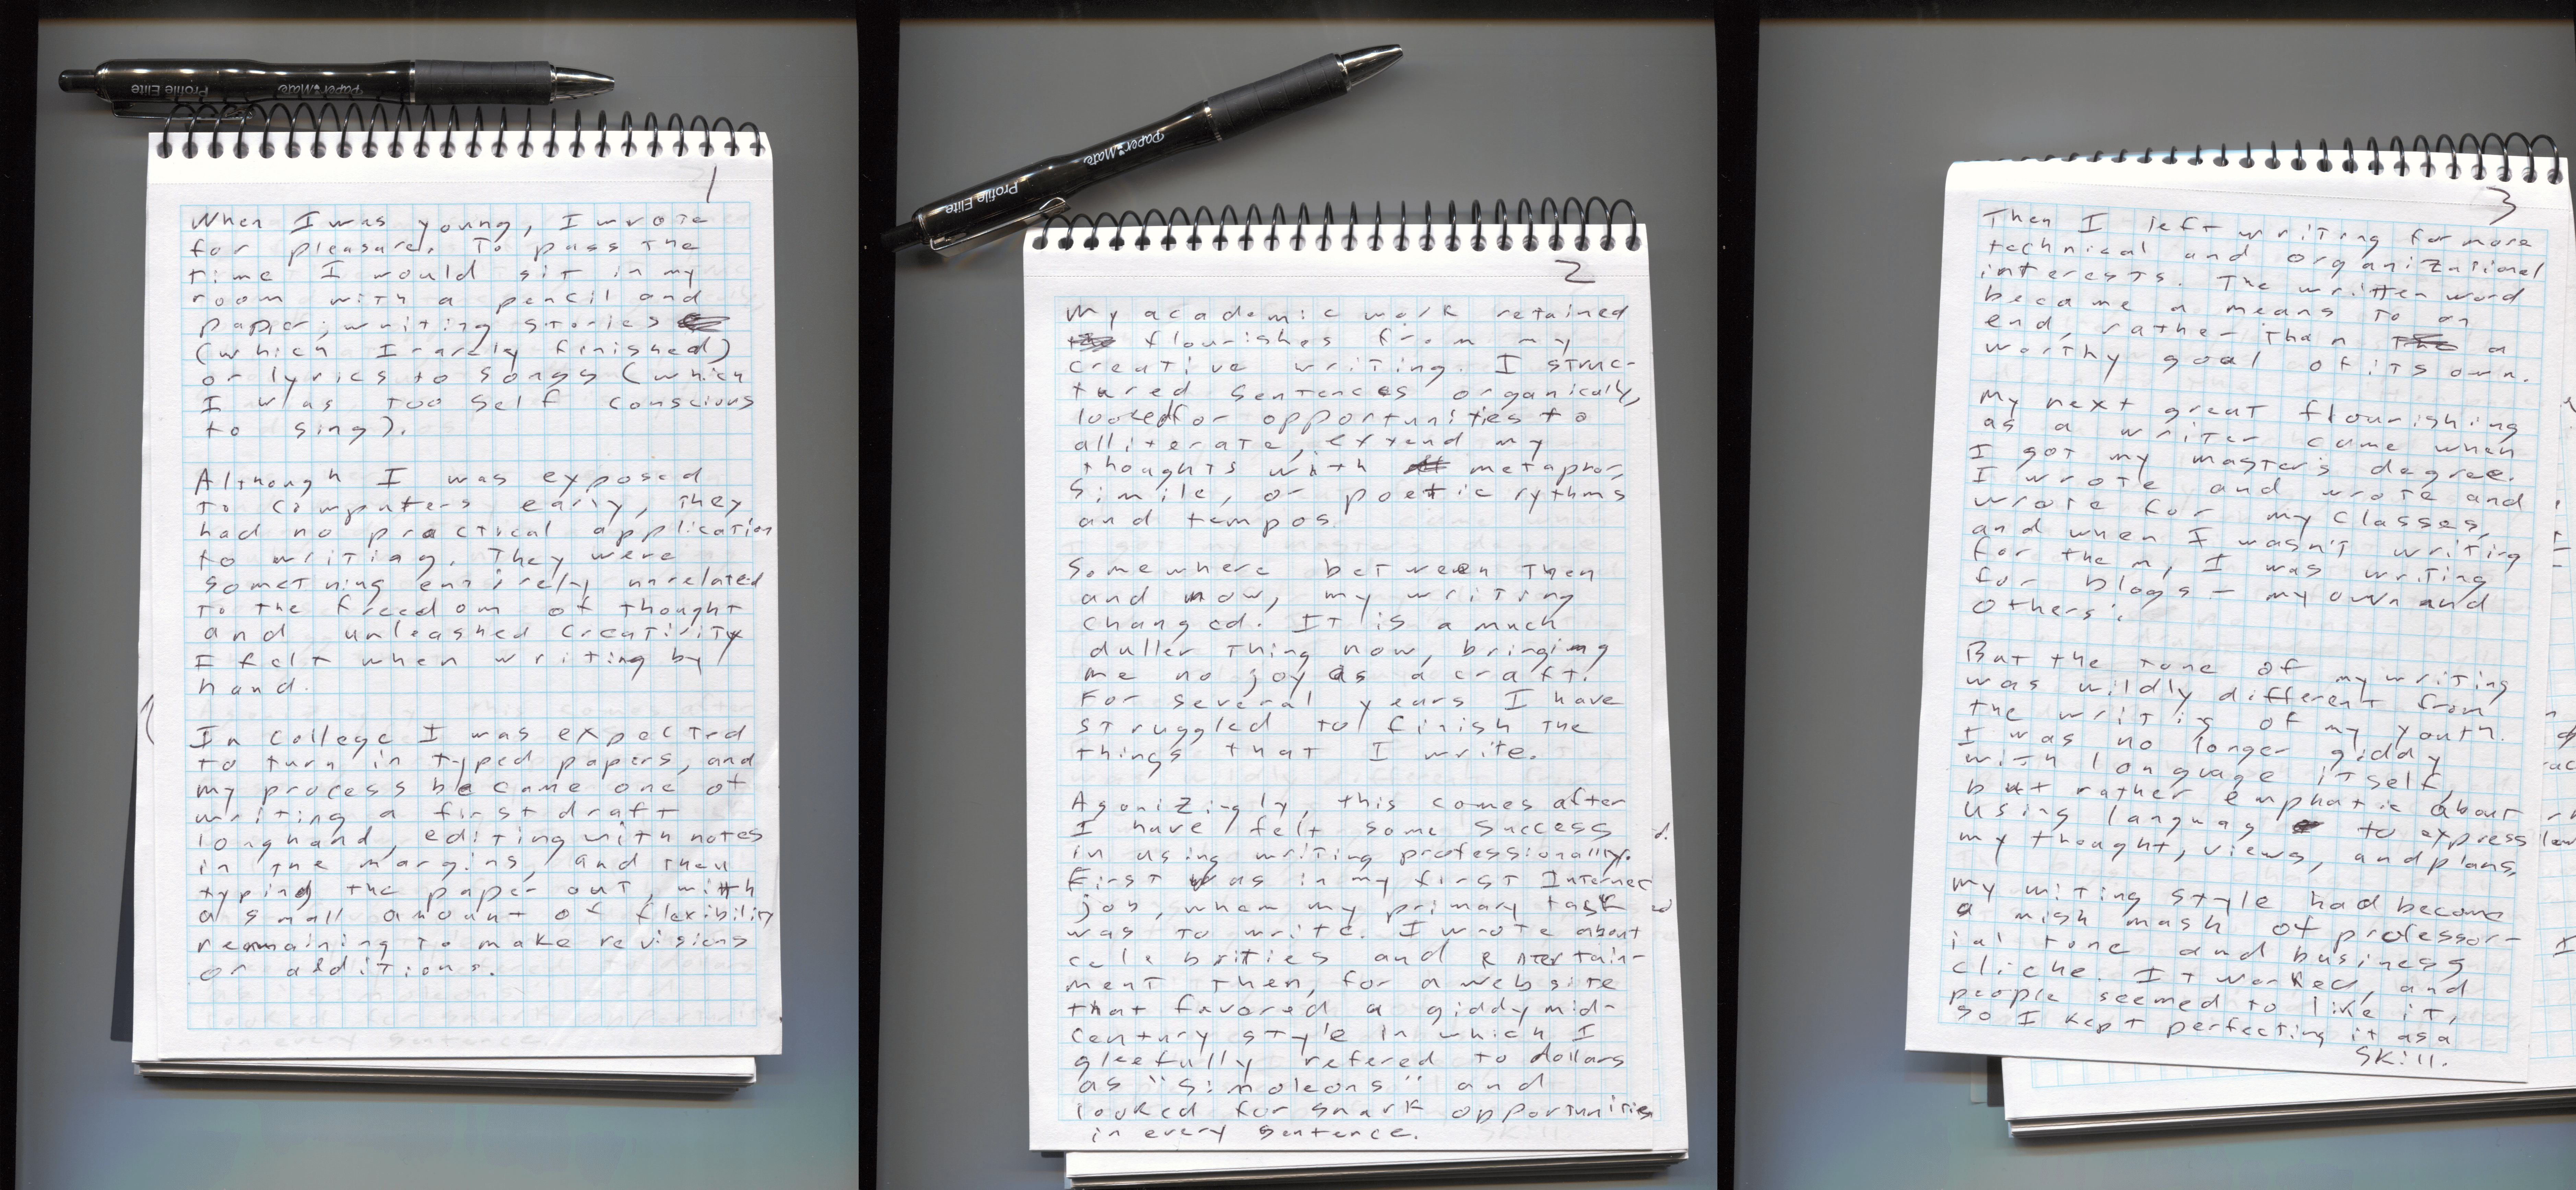 Profile Elite
PaperMate
1
When I was young, I wrote
for pleasure. To pass the
time I would sit in my
room with a pencil and
paper, writing stories
(which I rarely finished)
or lyrics to songs (which
I was too self conscious
to sing).
Although I was exposed
to computers early, they
had no practical application
to writing. They were
something entirely unrelated
to the freedom of thought
and unleashed creativity
I felt when writing by
hand.
In college I was expected
to turn in typed papers, and
my process became one of
writing a first draft
longhand, editing with notes
in the margins, and then
typing the paper out, with
a small amount of flexibility
remaining to make revisions
or additions.
Profile Elite
PaperMate
2
My academic work retained
flourishes from my
creative writing. I struc-
tured sentences organically,
looked for opportunities to
alliterate, extend my
thoughts with metaphor,
simile, or poetic rythms
and tempos
Somewhere between then
and now, my writing
changed. It is a much
duller thing now, bringing
me no joy as a craft.
For several years I have
struggled to finish the
things that I write.
Agonizingly, this comes after
I have felt some success
in using writing professionally.
First was in my first Internet
job, when my primary task
was to write. I wrote about
celebrities and entertain-
ment then, for a website
that favored a giddy mid-
century style in which I
gleefully refered to dollars
as "Simoleons" and
looked for snark opportunities
in every sentence.
3
Then I left writing for more
technical and organizational
interests. The written word
became a means to an
end, rather than a
worthy goal of its own.
My next great flourishing
as a writer came when
I got my master's degree.
I wrote and wrote and
wrote for my classes,
and when I wasn't writing
for them, I was writing
for blogs – my own and
others'.
But the tone of my writing
was wildly different from
the writing of my youth.
I was no longer giddy
with language itself,
but rather emphatic about
using languag to express
my thought, views, and plans.
My writing style had become
a mish mash of professor-
ial tone and business
cliche. It worked, and
people seemed to like it,
so I kept perfecting it as a
skill.